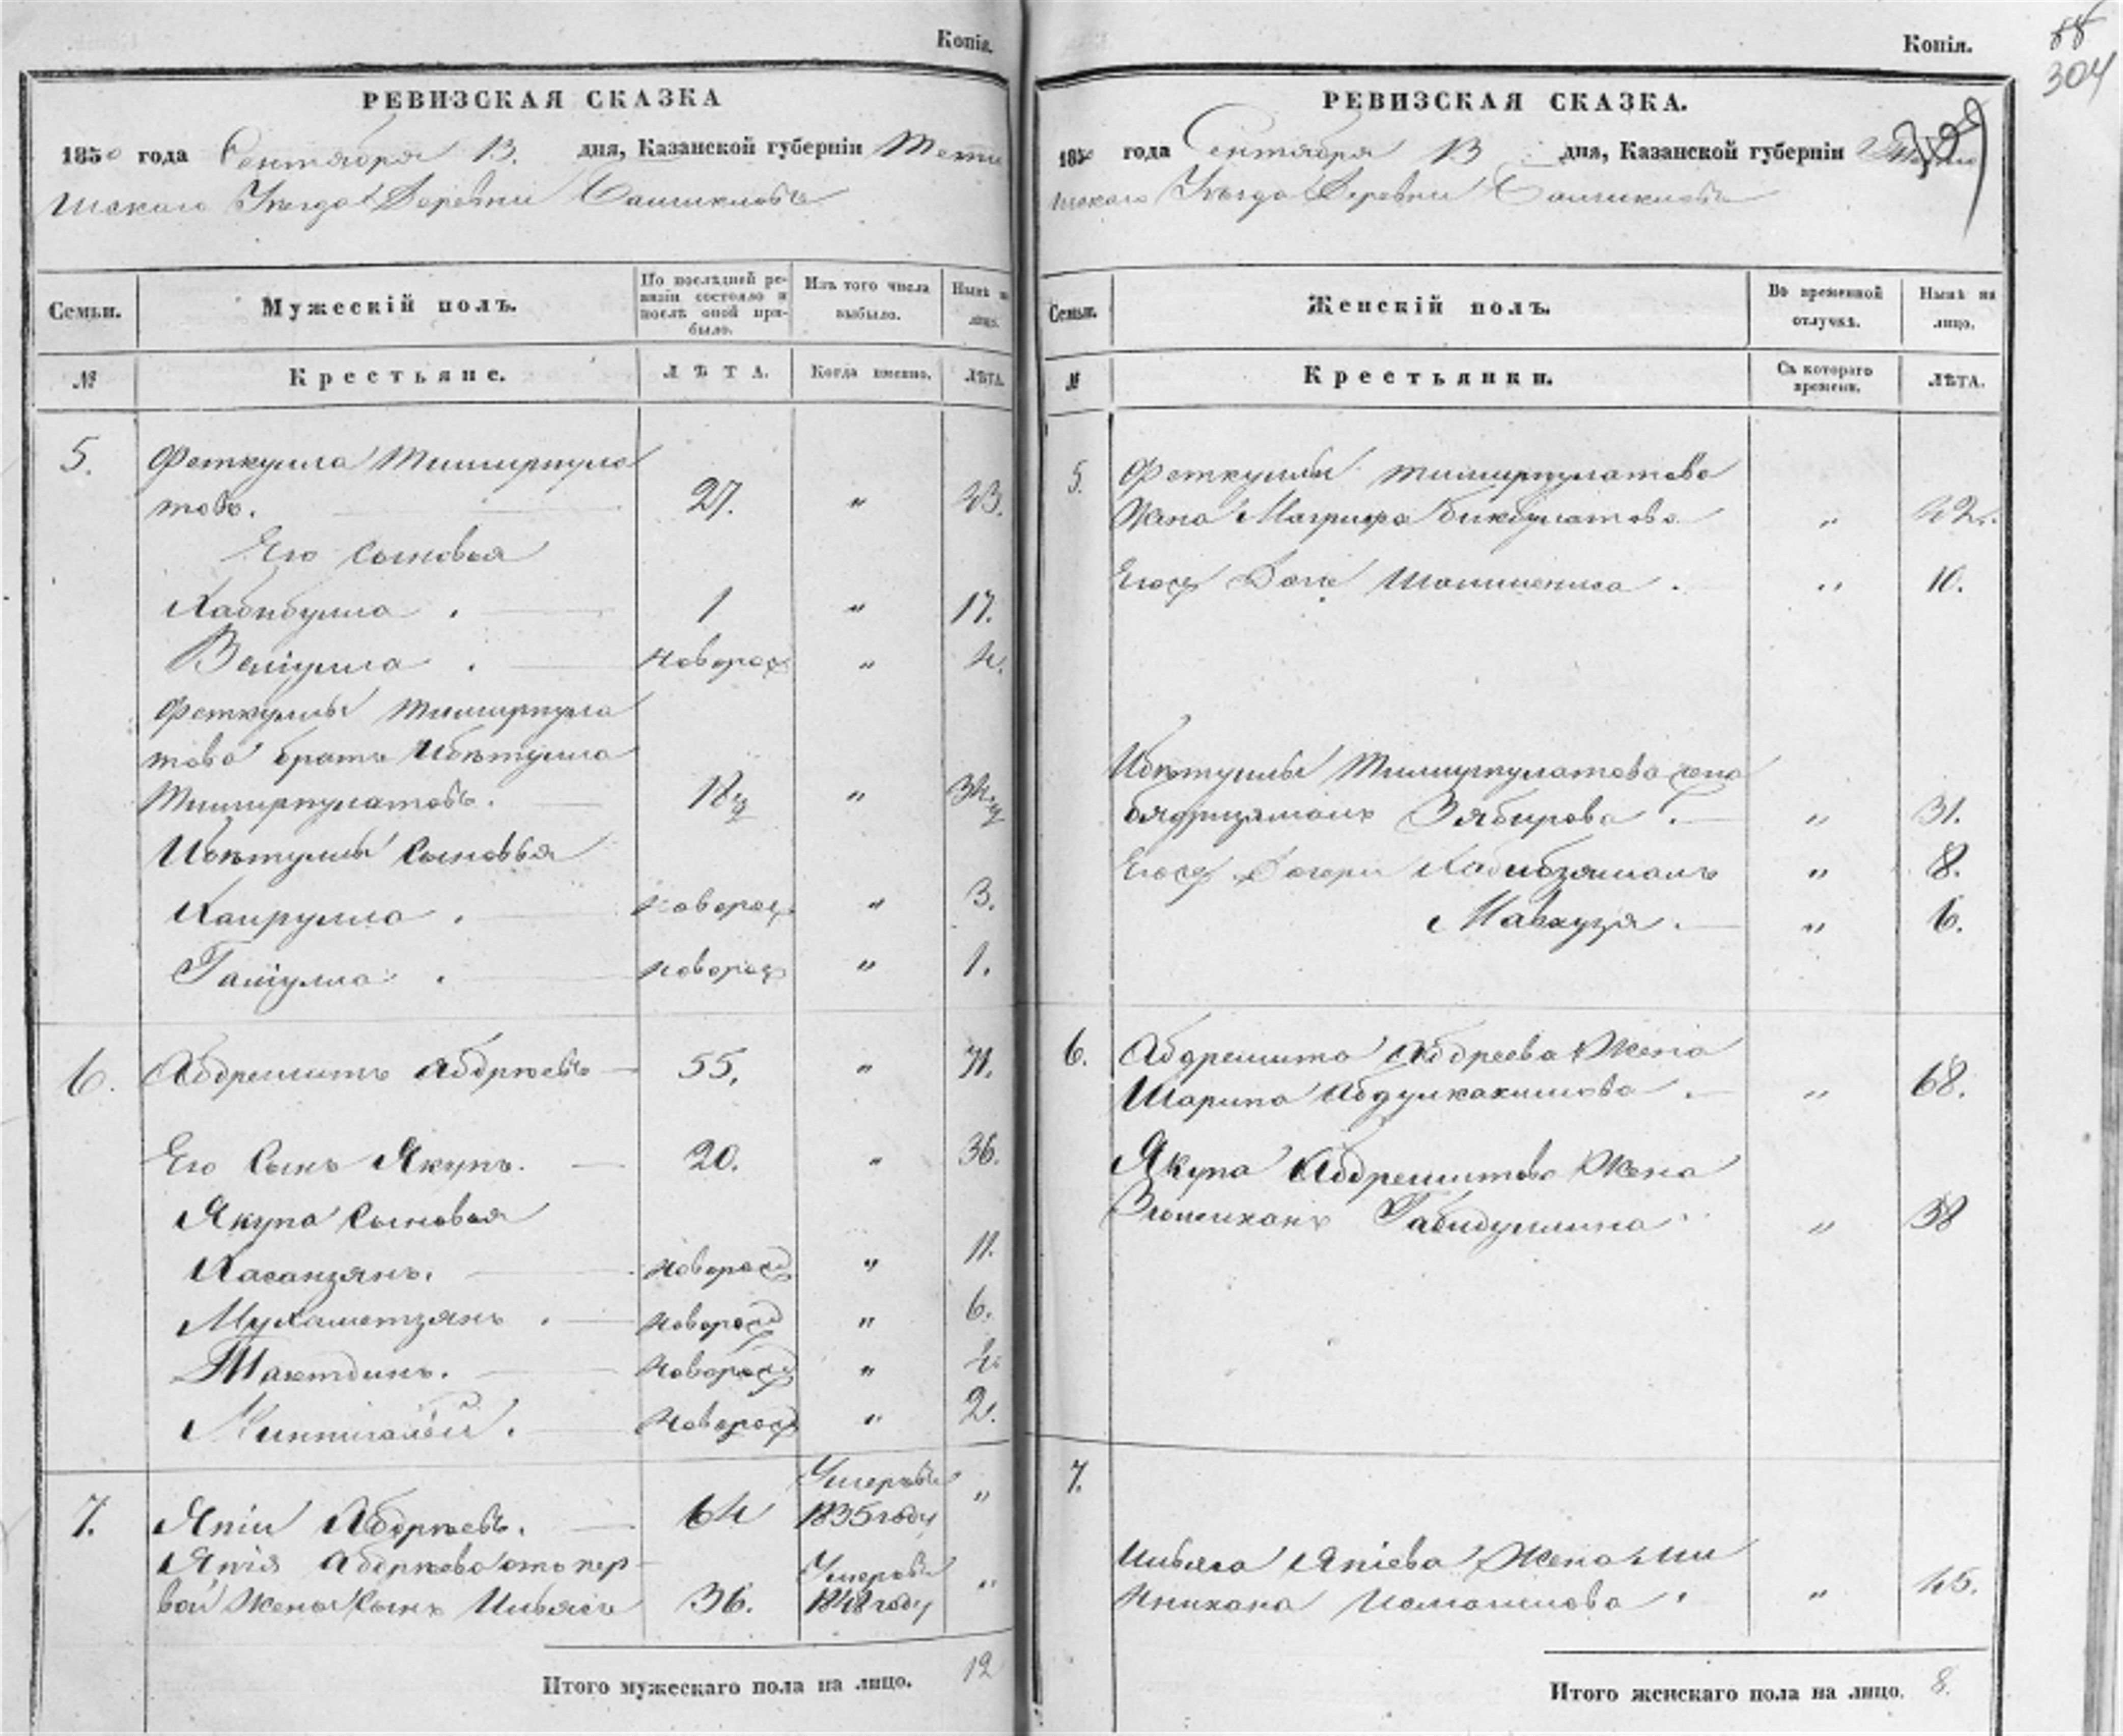 Копія.
РЕВИЗСКАЯ СКАЗКА
1850 года Сентября 13. дня, Казанской губерніи Тетю
шскаго Уѣзда Деревни
Семьи.
Мужескій полъ.
По послѣдней ре-
визіи состояло и
послѣ оной при-
было.
Изъ того числа
выбыло.
Нынѣ на
лицо.
№
Крестьяне.
ЛѢТА.
Когда именно.
ЛѢТА.
5.
Феткулла Тимирпула
товъ.
27.
"
43.
Его сыновья
Хабибулла .
1
"
17.
Велиулла .
новорож
"
4.
Феткуллы Тимирпула
това братъ Ибятулла
Тимирпулатовъ.
18½
"
34½
Ибятуллы сыновья
Хайрулла .
новорож
"
3.
Галиулла .
новорож
"
1.
6.
Абдрешитъ Абдрѣевъ
55.
"
71.
Его сынъ Якупъ.
20.
"
36.
Якупа сыновья
Хасанзянъ.
новорож
"
11.
Мухаметзянъ .
новорож
"
6.
новорож
"
4.
новорож
"
2.
7.
Япій Абдрѣевъ.
64
Умеръ въ
1835 году
"
Япія Абдрѣева отъ пер
вой жены сынъ Ильясъ
36.
Умеръ въ
1848 году
"
Итого мужескаго пола на лицо.
12
Копія.
304
РЕВИЗСКАЯ СКАЗКА.
1850 года Сентября 13 дня, Казанской губерніи Тетю
шскаго Уѣзда Деревни
Семьи.
Женскій полъ.
Во временной
отлучкѣ.
Нынѣ на
лицо.
№
Крестьянки.
Съ котораго
времени.
ЛѢТА.
5.
Феткуллы Тимирпулатова
Жена Магрифа Бикбулатова
"
42.
Ея дочь .
"
10.
Ибятуллы Тимирпулатова жена
Бядризямалъ Зябирова .
"
31.
Ея дочери Хабибзямалъ
"
8.
Мавлузя .
"
6.
6.
Абдрешита Абдреева Жена
Шарипа .
"
68.
Якупа Абдрешитова Жена
Габидуллина
"
38
7.
Ильяса Япіева Жена Ми
"
45.
Итого женскаго пола на лицо.
8.